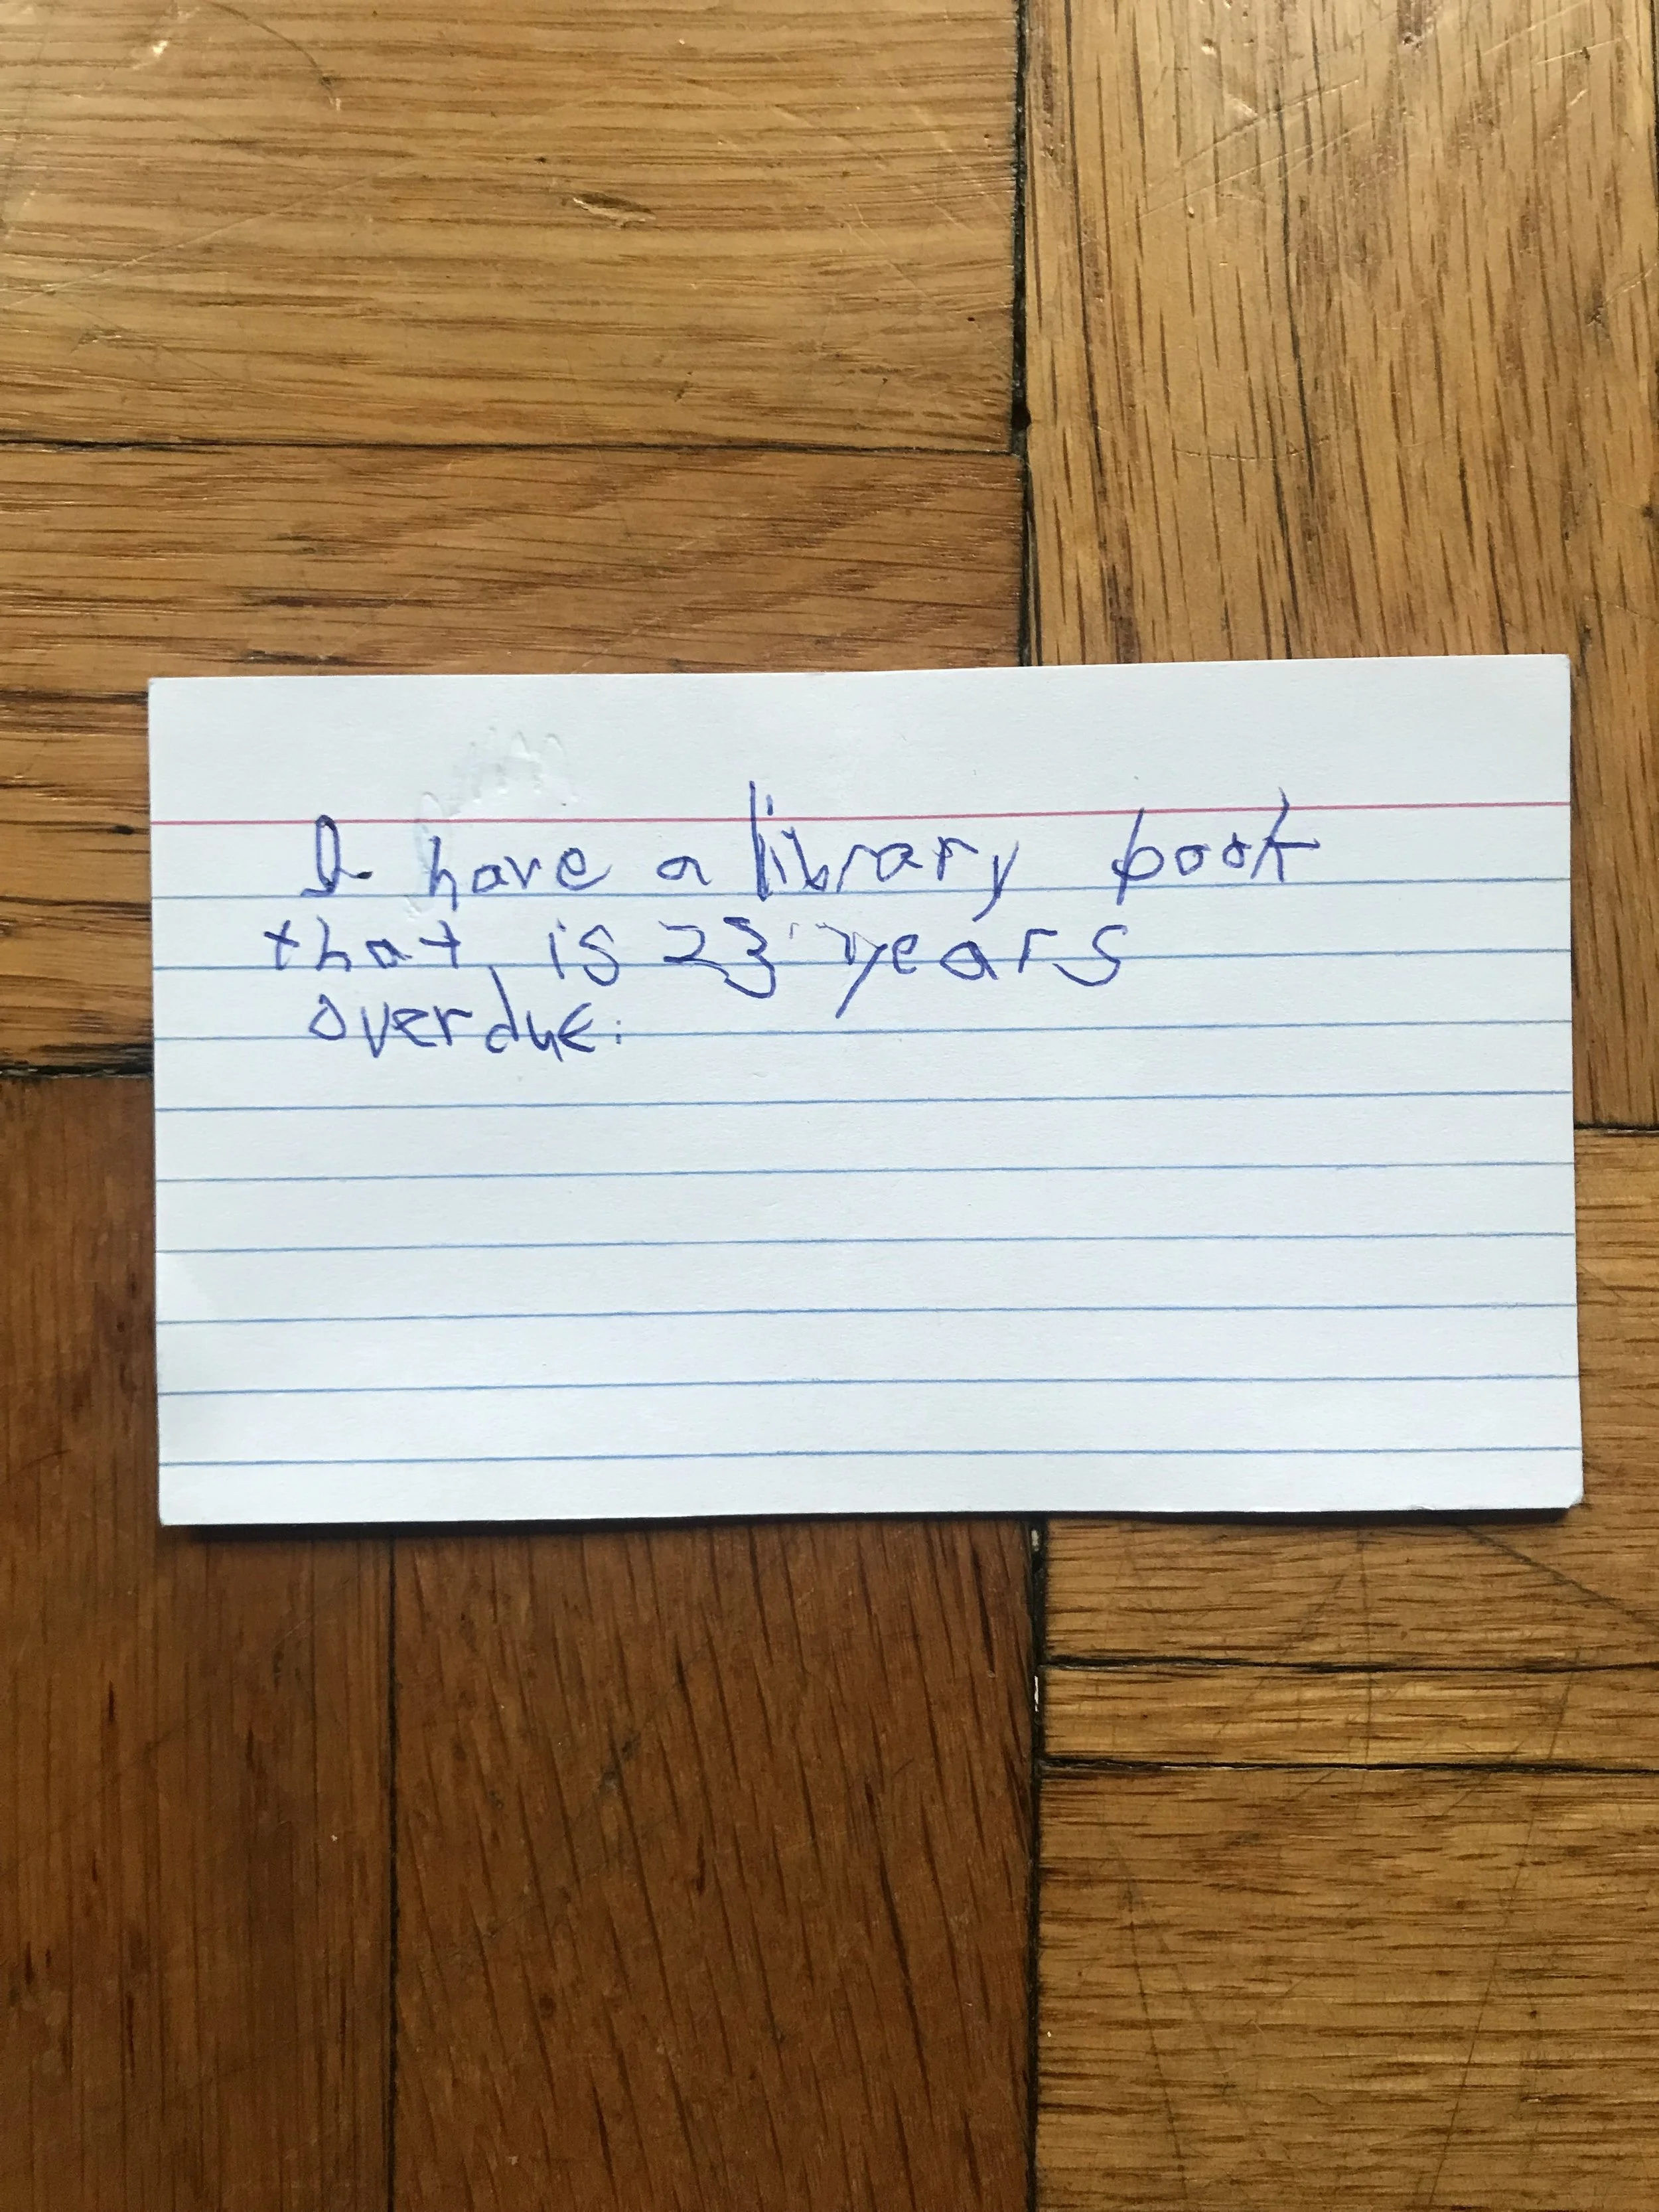 I have a library book
that is 23 years
overdue.